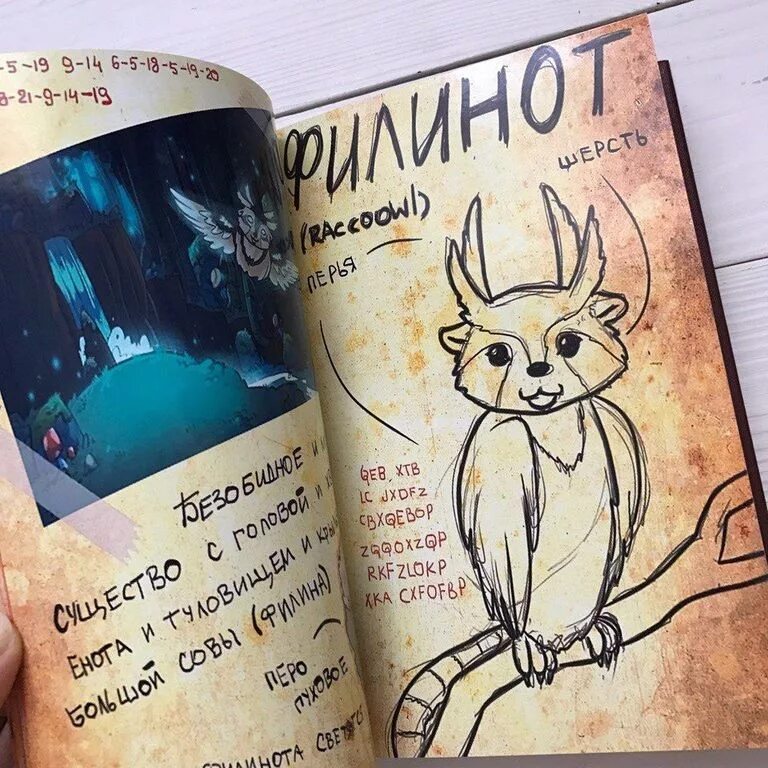 -5-19 9-14 6-5-18-5-19-20
8-21-9-14-19
БЕЗОБИДНОЕ И
СУЩЕСТВО С ГОЛОВОЙ И
ЕНОТА И ТУЛОВИЩЕМ И КРЫ
БОЛЬШОЙ СОВЫ (ФИЛИНА)
ПЕРО
ПУХОВОЕ
ФИЛИНОТ
(RACCOOWL)
ШЕРСТЬ
ПЕРЬЯ
QEB, XTB
LC JXDFZ
CBXQEBOP
ZQQOXZQP
RKFZLOKP
XKA CXFOFBP